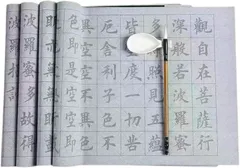 觀自在菩薩行
深般若波羅蜜
多
皆空度一切苦
厄舍利子色不
異空空不異色
色即是空
波羅蜜多故得
波羅